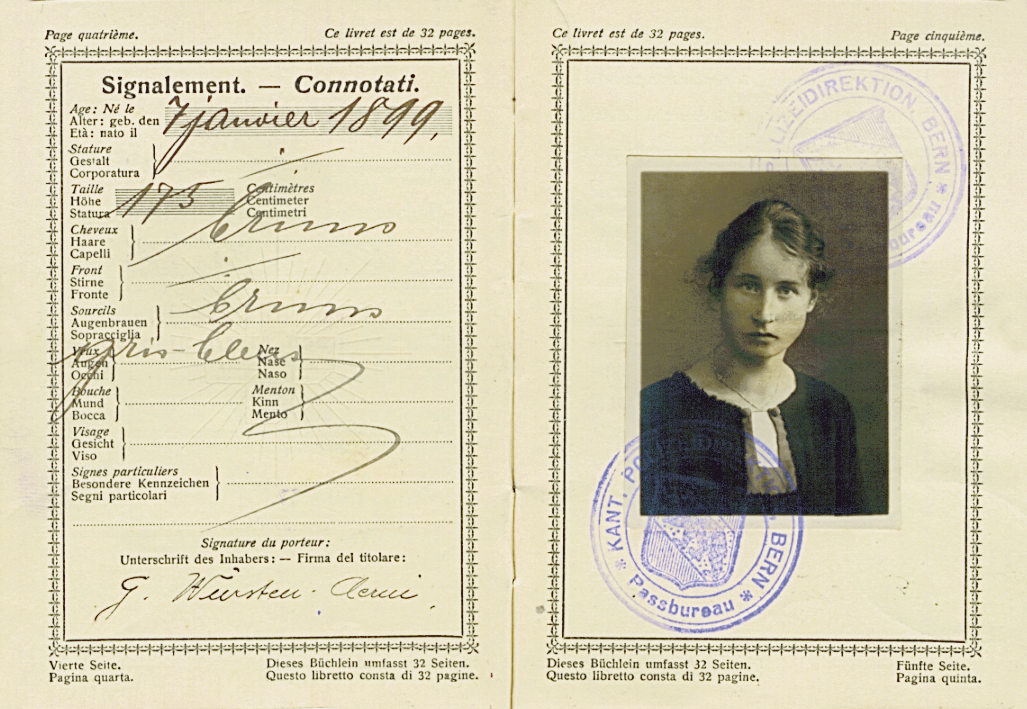 Page quatrième.
Ce livret est de 32 pages.
Signalement. — Connotati.
Age: Né le
Alter: geb. den
Età: nato il
7 janvier 1899,
Stature
Gestalt
Corporatura
Taille
Höhe
Statura
175
Centimètres
Centimeter
Centimetri
Cheveux
Haare
Capelli
bruns
Front
Stirne
Fronte
Sourcils
Augenbrauen
Sopracciglia
bruns
Yeux
Augen
Occhi
gris-bleus
Nez
Nase
Naso
Bouche
Mund
Bocca
Menton
Kinn
Mento
Visage
Gesicht
Viso
Signes particuliers
Besondere Kennzeichen
Segni particolari
Signature du porteur:
Unterschrift des Inhabers: — Firma del titolare:
G. Würsten-
Vierte Seite.
Pagina quarta.
Dieses Büchlein umfasst 32 Seiten.
Questo libretto consta di 32 pagine.
Ce livret est de 32 pages.
Page cinquième.
LIZEIDIREKTION, BERN
KANT. PO
BERN
Passbureau
Dieses Büchlein umfasst 32 Seiten.
Questo libretto consta di 32 pagine.
Fünfte Seite.
Pagina quinta.